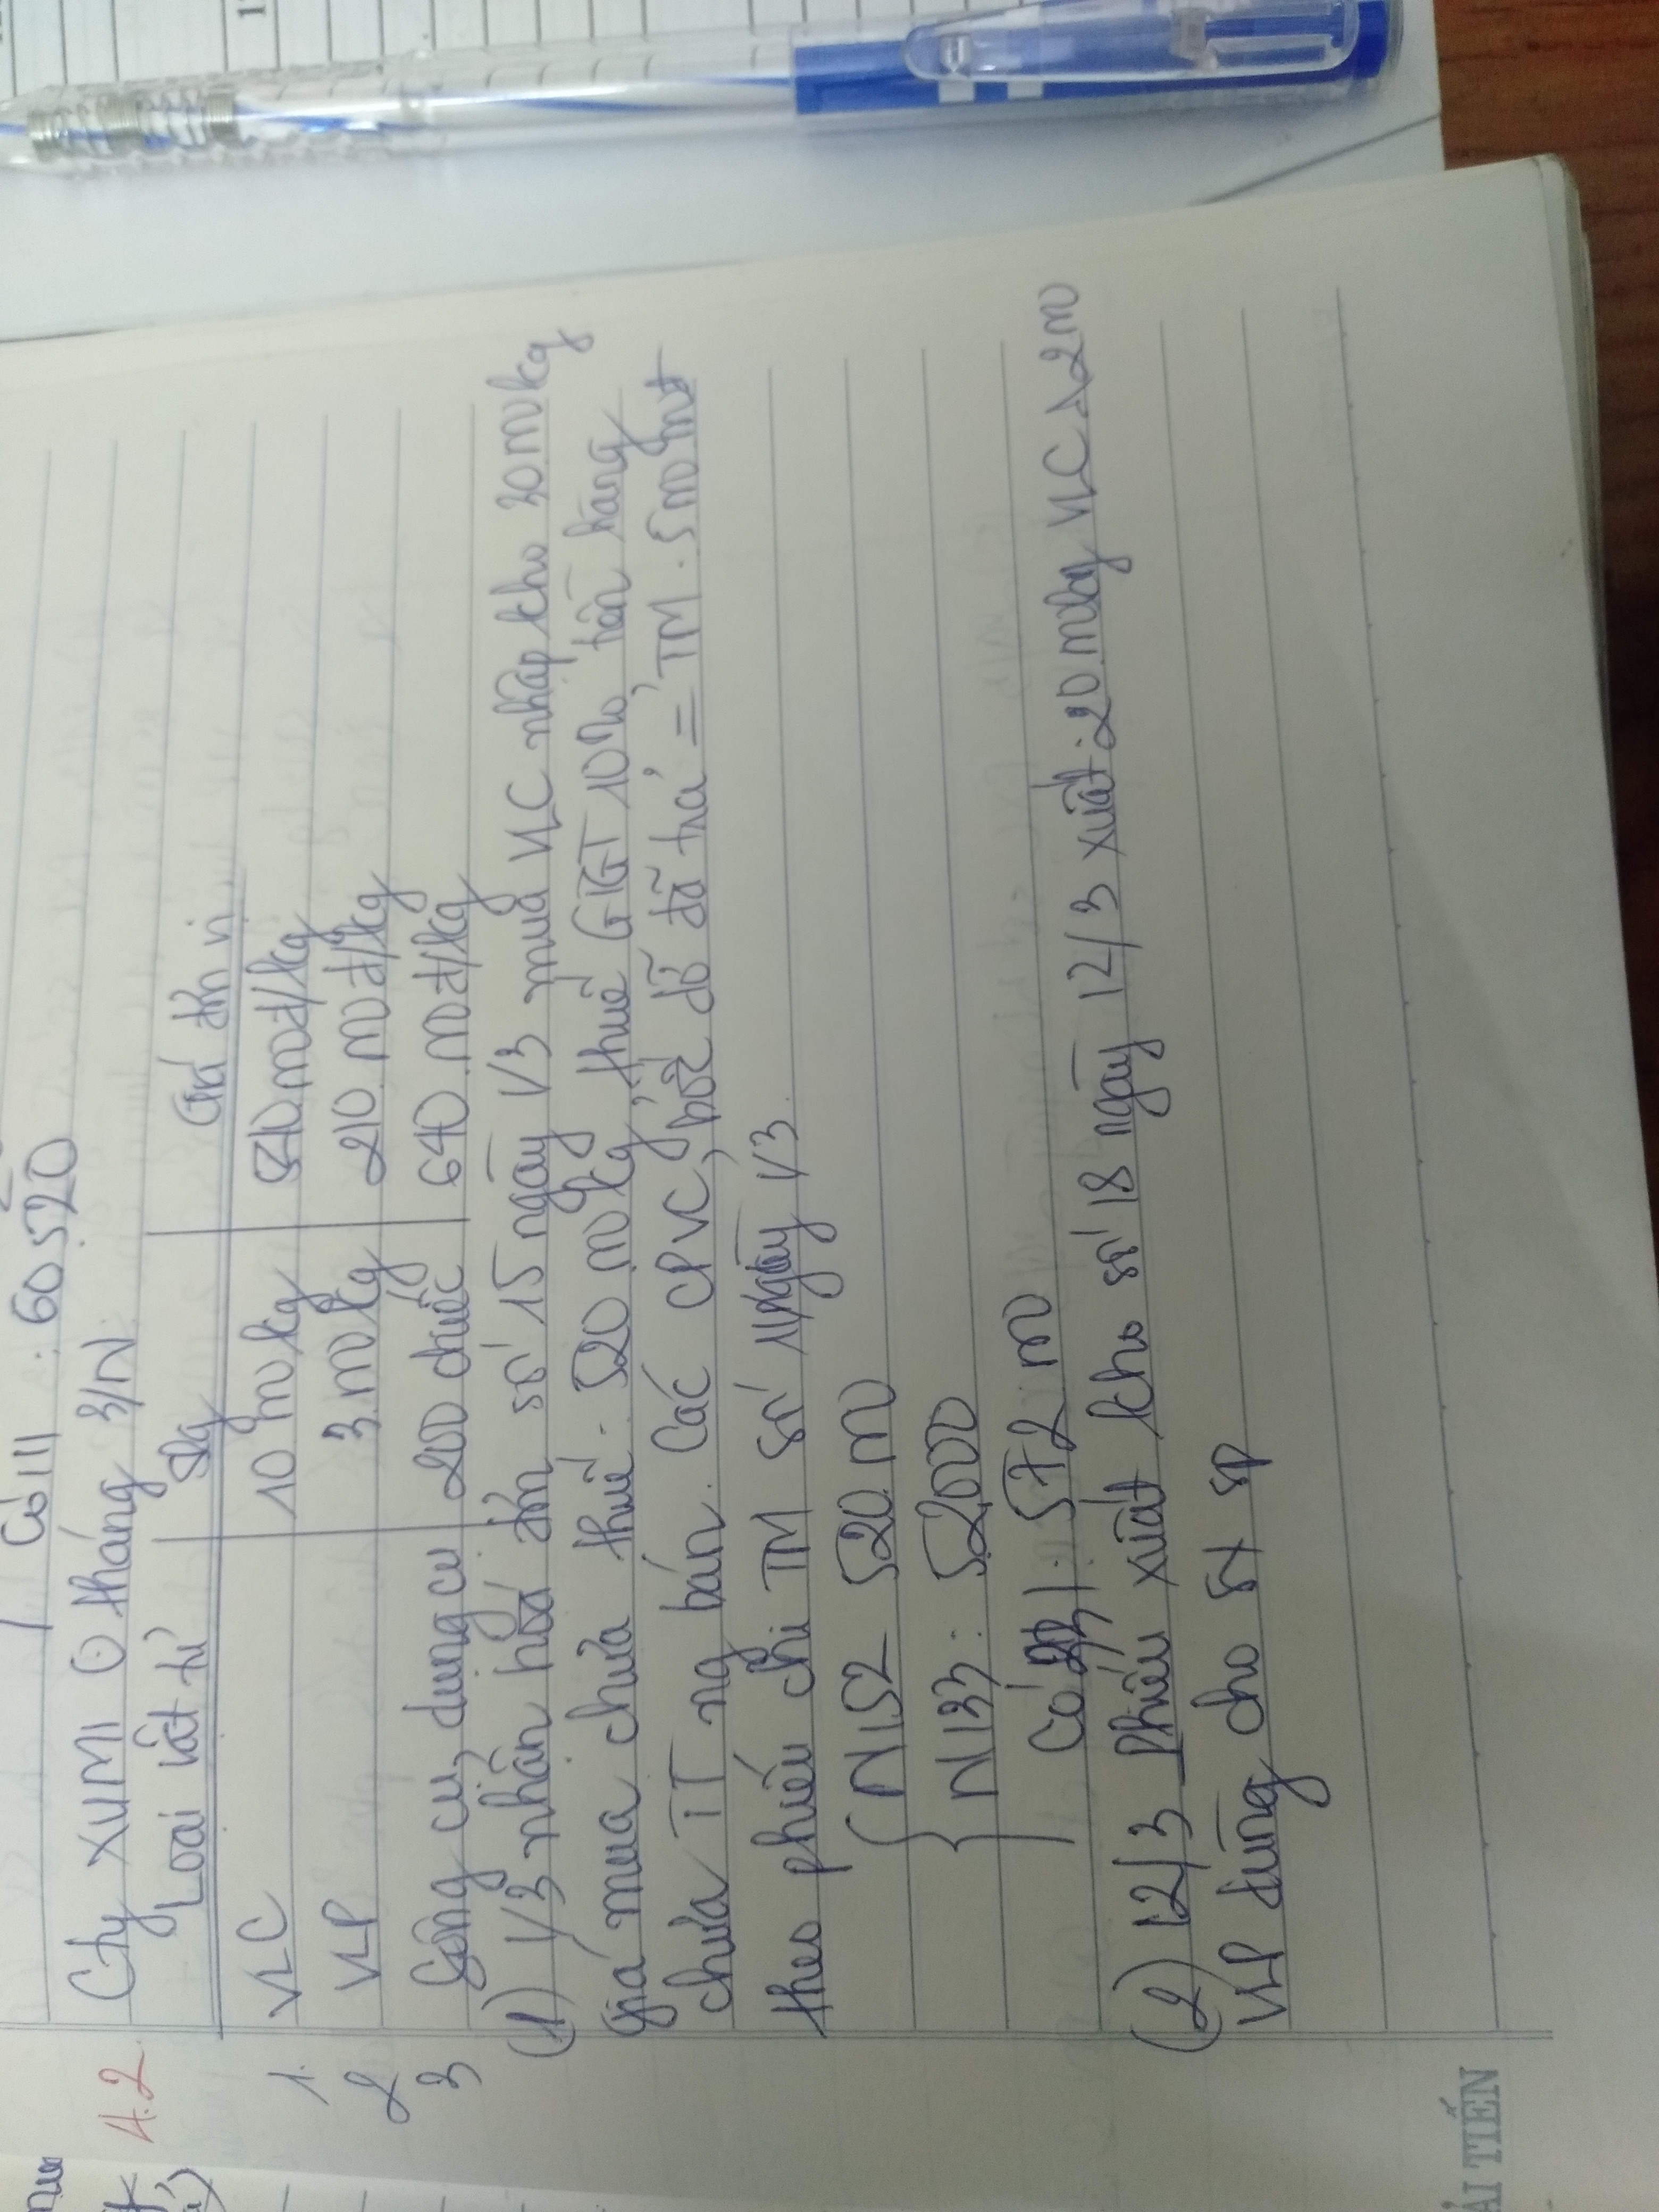 Có 111 : 60.520
4.2. Cty XUMI ⊙ tháng 3/N:
Loại vật tư Slg Giá đơn vị
1. VLC 10 m kg 540 mđ/kg
2 VLP 3 m kg 210 mđ/kg
3 Công cụ, dụng cụ 200 chiếc 640 mđ/kg
(1) 1/3 nhận hoá đơn số 15 ngày 1/3 mua VLC nhập kho 30 m kg
giá mua chưa thuế. 520 m kg, thuế GTGT 10% tiền hàng
chưa TT ng bán. Các CPVC, bốc dỡ đã trả = TM. 5m
theo phiếu chi TM số 11 ngày 1/3.
N152 520 m
N133: 52000
Có 331: 572 m
(2) 12/3 Phiếu xuất kho số 18 ngày 12/3 xuất: 20 m kg VLC 2m
VLP dùng cho sx sp
ẢI TIẾN